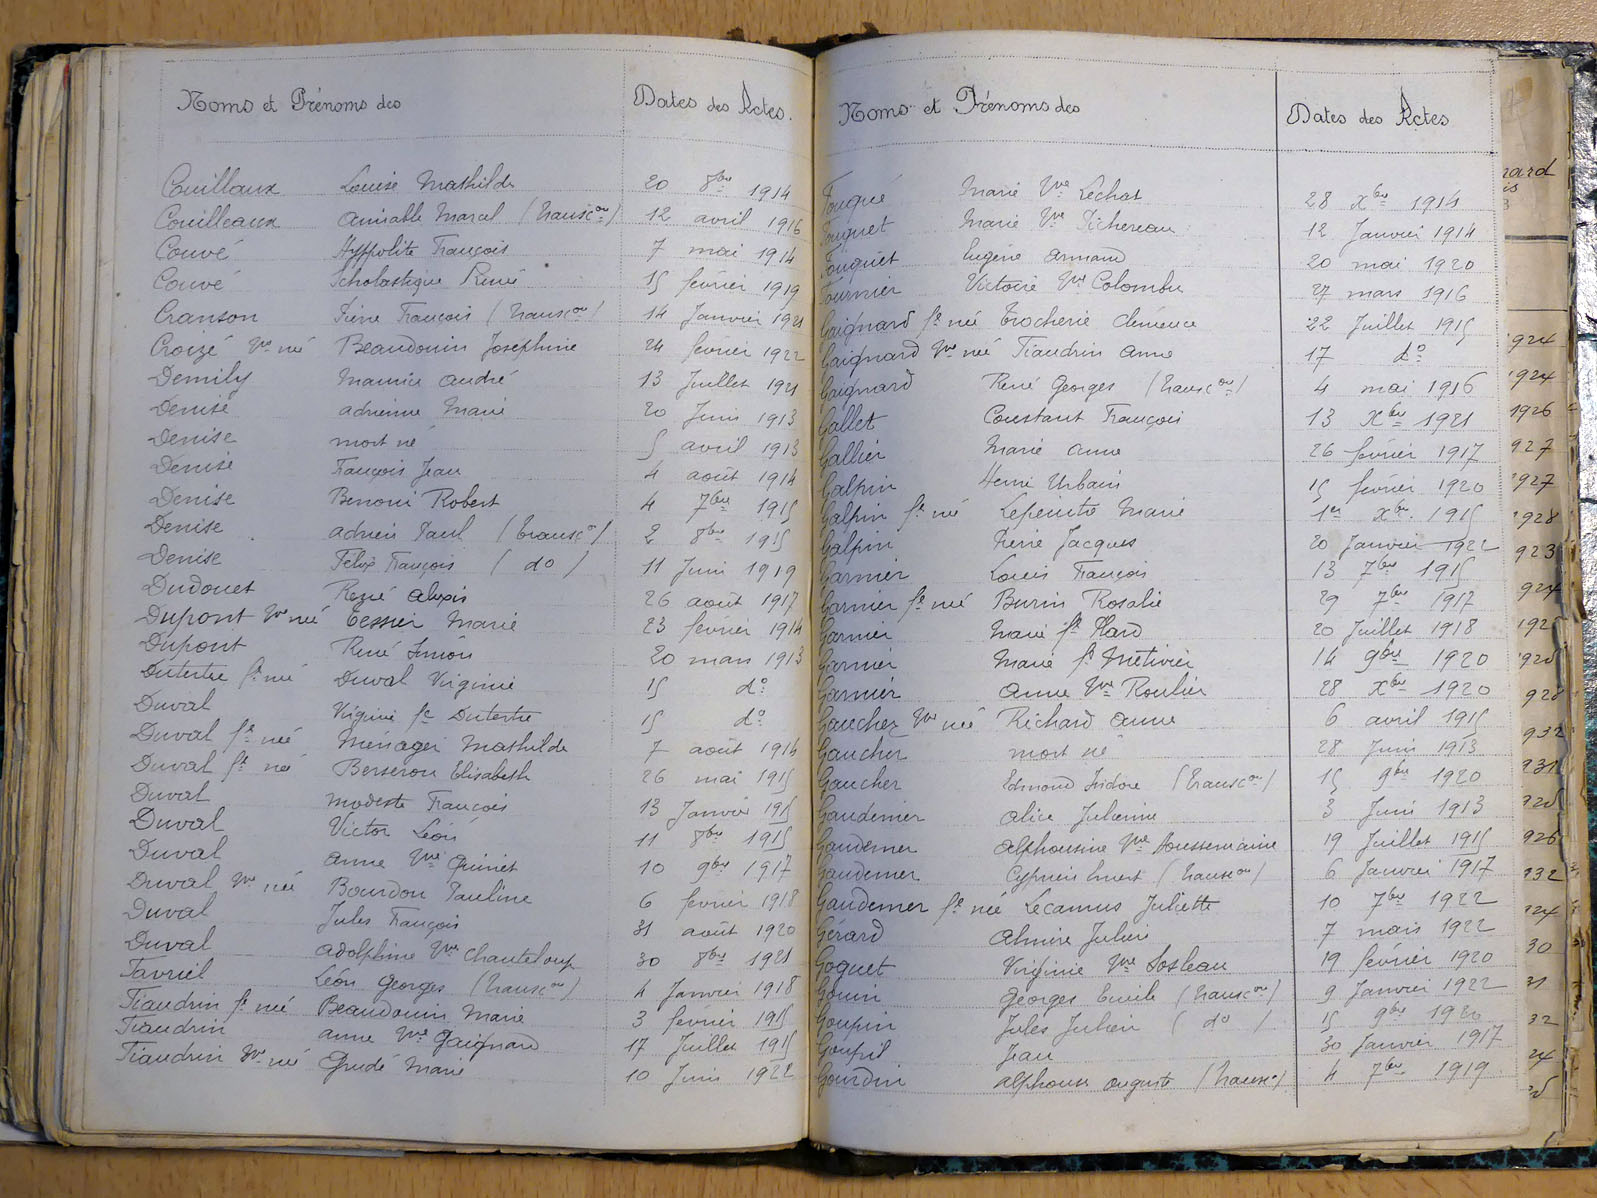 Noms et Prénoms des Dates des Actes.
Couillaux Louise Mathilde 20 8bre 1914
Couilleaux Aimable Marcel (transcon) 12 avril 1916
Couvé Hyppolite François 7 mai 1914
Couvé Scholastique René 15 février 1919
Cranson Pierre François (transcon) 14 Janvier 1921
Croizé Vve née Beaudouin Joséphine 24 février 1922
Demily Maurice André 13 Juillet 1921
Denise Adrienne Marie 20 Juin 1913
Denise mort né 5 avril 1913
Denise François Jean 4 août 1914
Denise Benoni Robert 4 7bre 1915
Denise Adrien Paul (transcon) 2 8bre 1915
Denise Félix François (do) 11 Juin 1919
Dudouet René Alexis 26 août 1917
Dupont Vve née Tessier Marie 23 février 1914
Dupont René Simon 20 mars 1913
Dutertre fe née Duval Virginie 15 do
Duval Virginie fe Dutertre 15 do
Duval fe née Ménager Mathilde 7 août 1914
Duval fe née Berseron Elisabeth 26 mai 1915
Duval Modeste François 13 Janvier 1915
Duval Victor Léon 11 8bre 1915
Duval Anne Vve Quinet 10 9bre 1917
Duval Vve née Bourdon Pauline 6 février 1918
Duval Jules François 31 août 1920
Duval Adolphine Vve Chanteloup 30 8bre 1921
Favriel Léon Georges (transcon) 4 Janvier 1918
Fiaudrin fe née Beaudouin Marie 3 février 1915
Fiaudrin Anne Vve Gaignard 17 Juillet 1915
Fiaudrin Vve née Grudé Marie 10 Juin 1922
Noms et Prénoms des Dates des Actes
Fouqué Marie Vve Lechat 28 Xbre 1914
Fouquet Marie Vve Pichereau 12 Janvier 1914
Fouquet Eugène Armand 20 mai 1920
Fournier Victoire Vve Colombu 27 mars 1916
Gaignard fe née Trocherie Clémence 22 Juillet 1915
Gaignard Vve née Fiaudrin Anne 17 do
Gaignard René Georges (transcon) 4 mai 1916
Gallet Constant François 13 Xbre 1921
Gallier Marie Anne 26 février 1917
Galpin Henri Urbain 15 février 1920
Galpin fe née Lepeintre Marie 1er Xbre 1915
Galpin Pierre Jacques 20 Janvier 1922
Garnier Louis François 13 7bre 1915
Garnier fe née Burin Rosalie 29 7bre 1917
Garnier Marie fe Hard 20 Juillet 1918
Garnier Marie fe Métivier 14 9bre 1920
Garnier Anne Vve Roulier 28 Xbre 1920
Gaucher Vve née Richard Anne 6 avril 1915
Gaucher mort né 28 Juin 1913
Gaucher Edmond Isidore (transcon) 15 9bre 1920
Gaudemer Alice Julienne 3 Juin 1913
Gaudemer Alphonsine Vve Houssemaine 19 Juillet 1915
Gaudemer Cyprien Ernest (transcon) 6 Janvier 1917
Gaudemer fe née Lecamus Juliette 10 7bre 1922
Gérard Almire Julien 7 mars 1922
Goguet Virginie Vve Losleau 19 février 1920
Gouin Georges Emile (transcon) 9 Janvier 1922
Goupin Jules Julien (do) 15 9bre 1920
Goupil Jean 30 Janvier 1917
Gourdin Alphonse Auguste (transcon) 4 7bre 1919